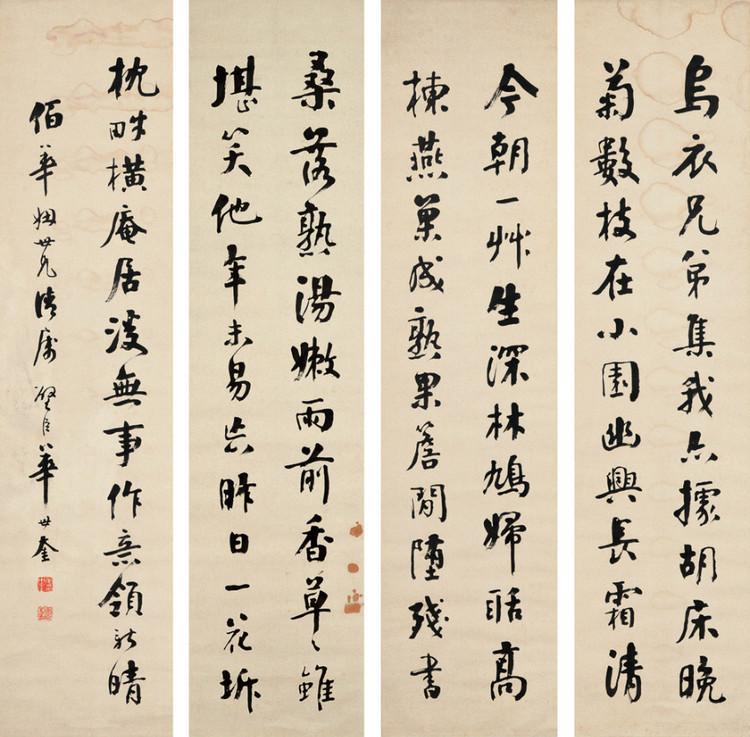 烏衣兄弟集我亦據胡床晚
菊數枝在小園幽興長霜清
今朝一艸生深林鳩婦聒高
棟燕巢成熟果簷間墮殘書
桑落熟湯嫩雨前香草〻雖
堪笑他年未易忘昨日一花坼
枕畔橫庵居復無事作意領新晴
佰華姻世兄清屬 璧臣華世奎